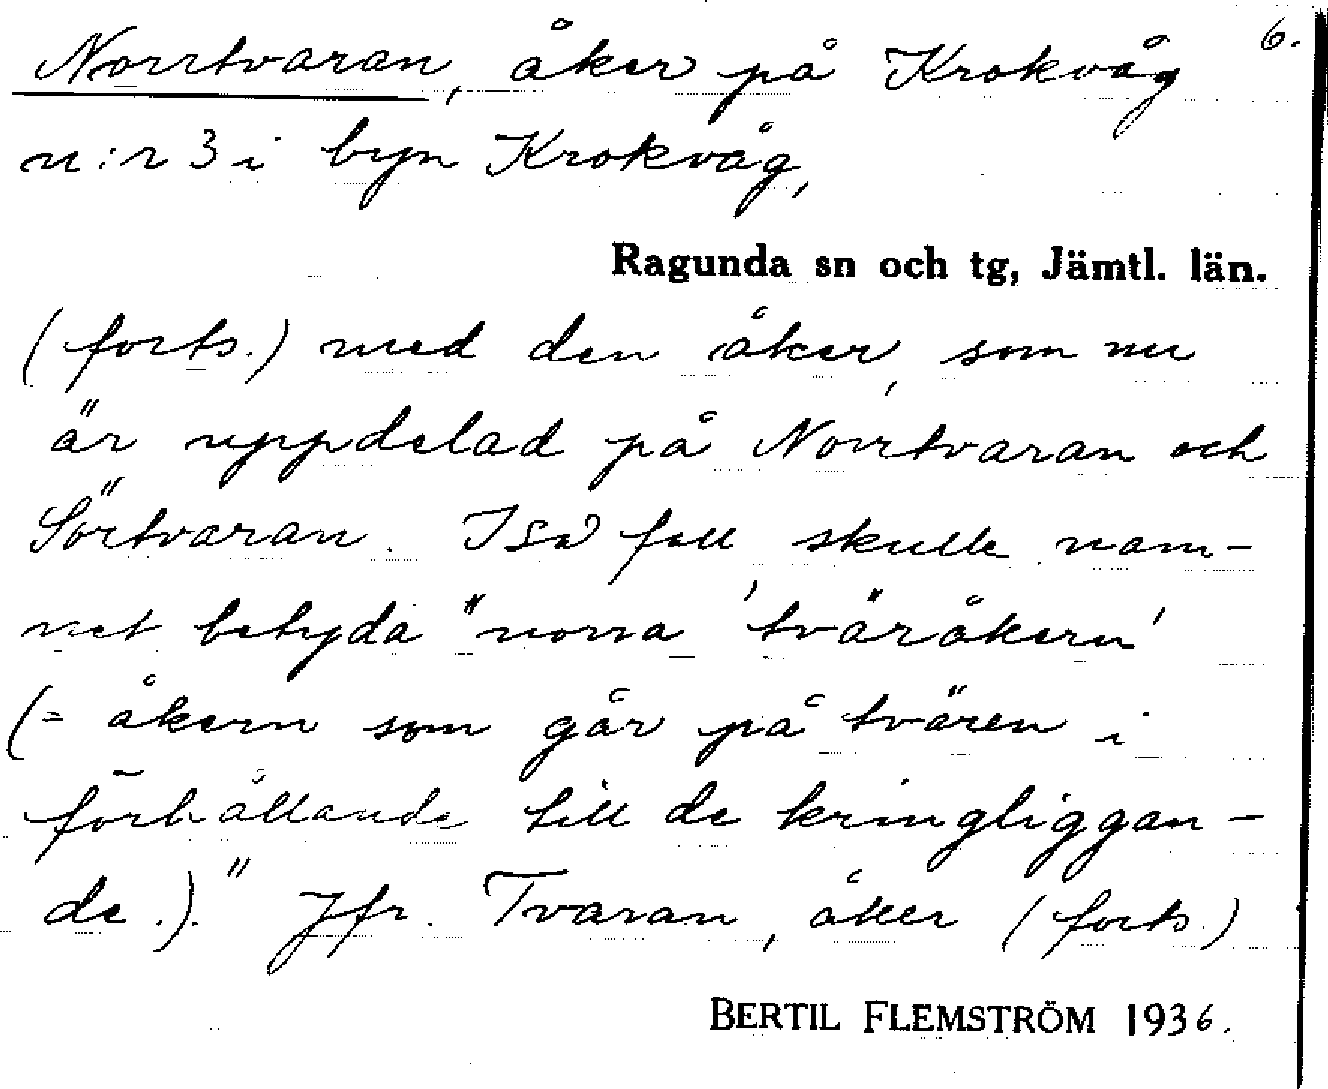 Norrtvaran, åker på Krokvåg 6.
n:r 3 i byn Krokvåg,
Ragunda sn och tg, Jämtl. län.
(forts.) med den åker, som nu
är uppdelad på Norrtvaran och
Sörtvaran. I så fall skulle nam-
net betyda "norra 'tväråkern'
(= åkern som går på tvären i
förhållande till de kringliggan-
de.)." Jfr. Tvaran, åker (forts.)
BERTIL FLEMSTRÖM 1936.